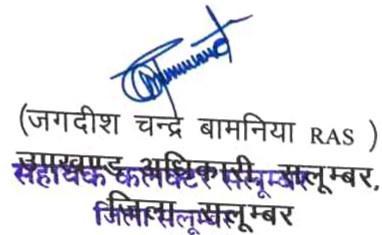 (जगदीश चन्द्र बामनिया RAS )
उपखण्ड अधिकारी, सलूम्बर,
सहायक कलक्टर सलूम्बर
जिला सलूम्बर
जिला सलूम्बर